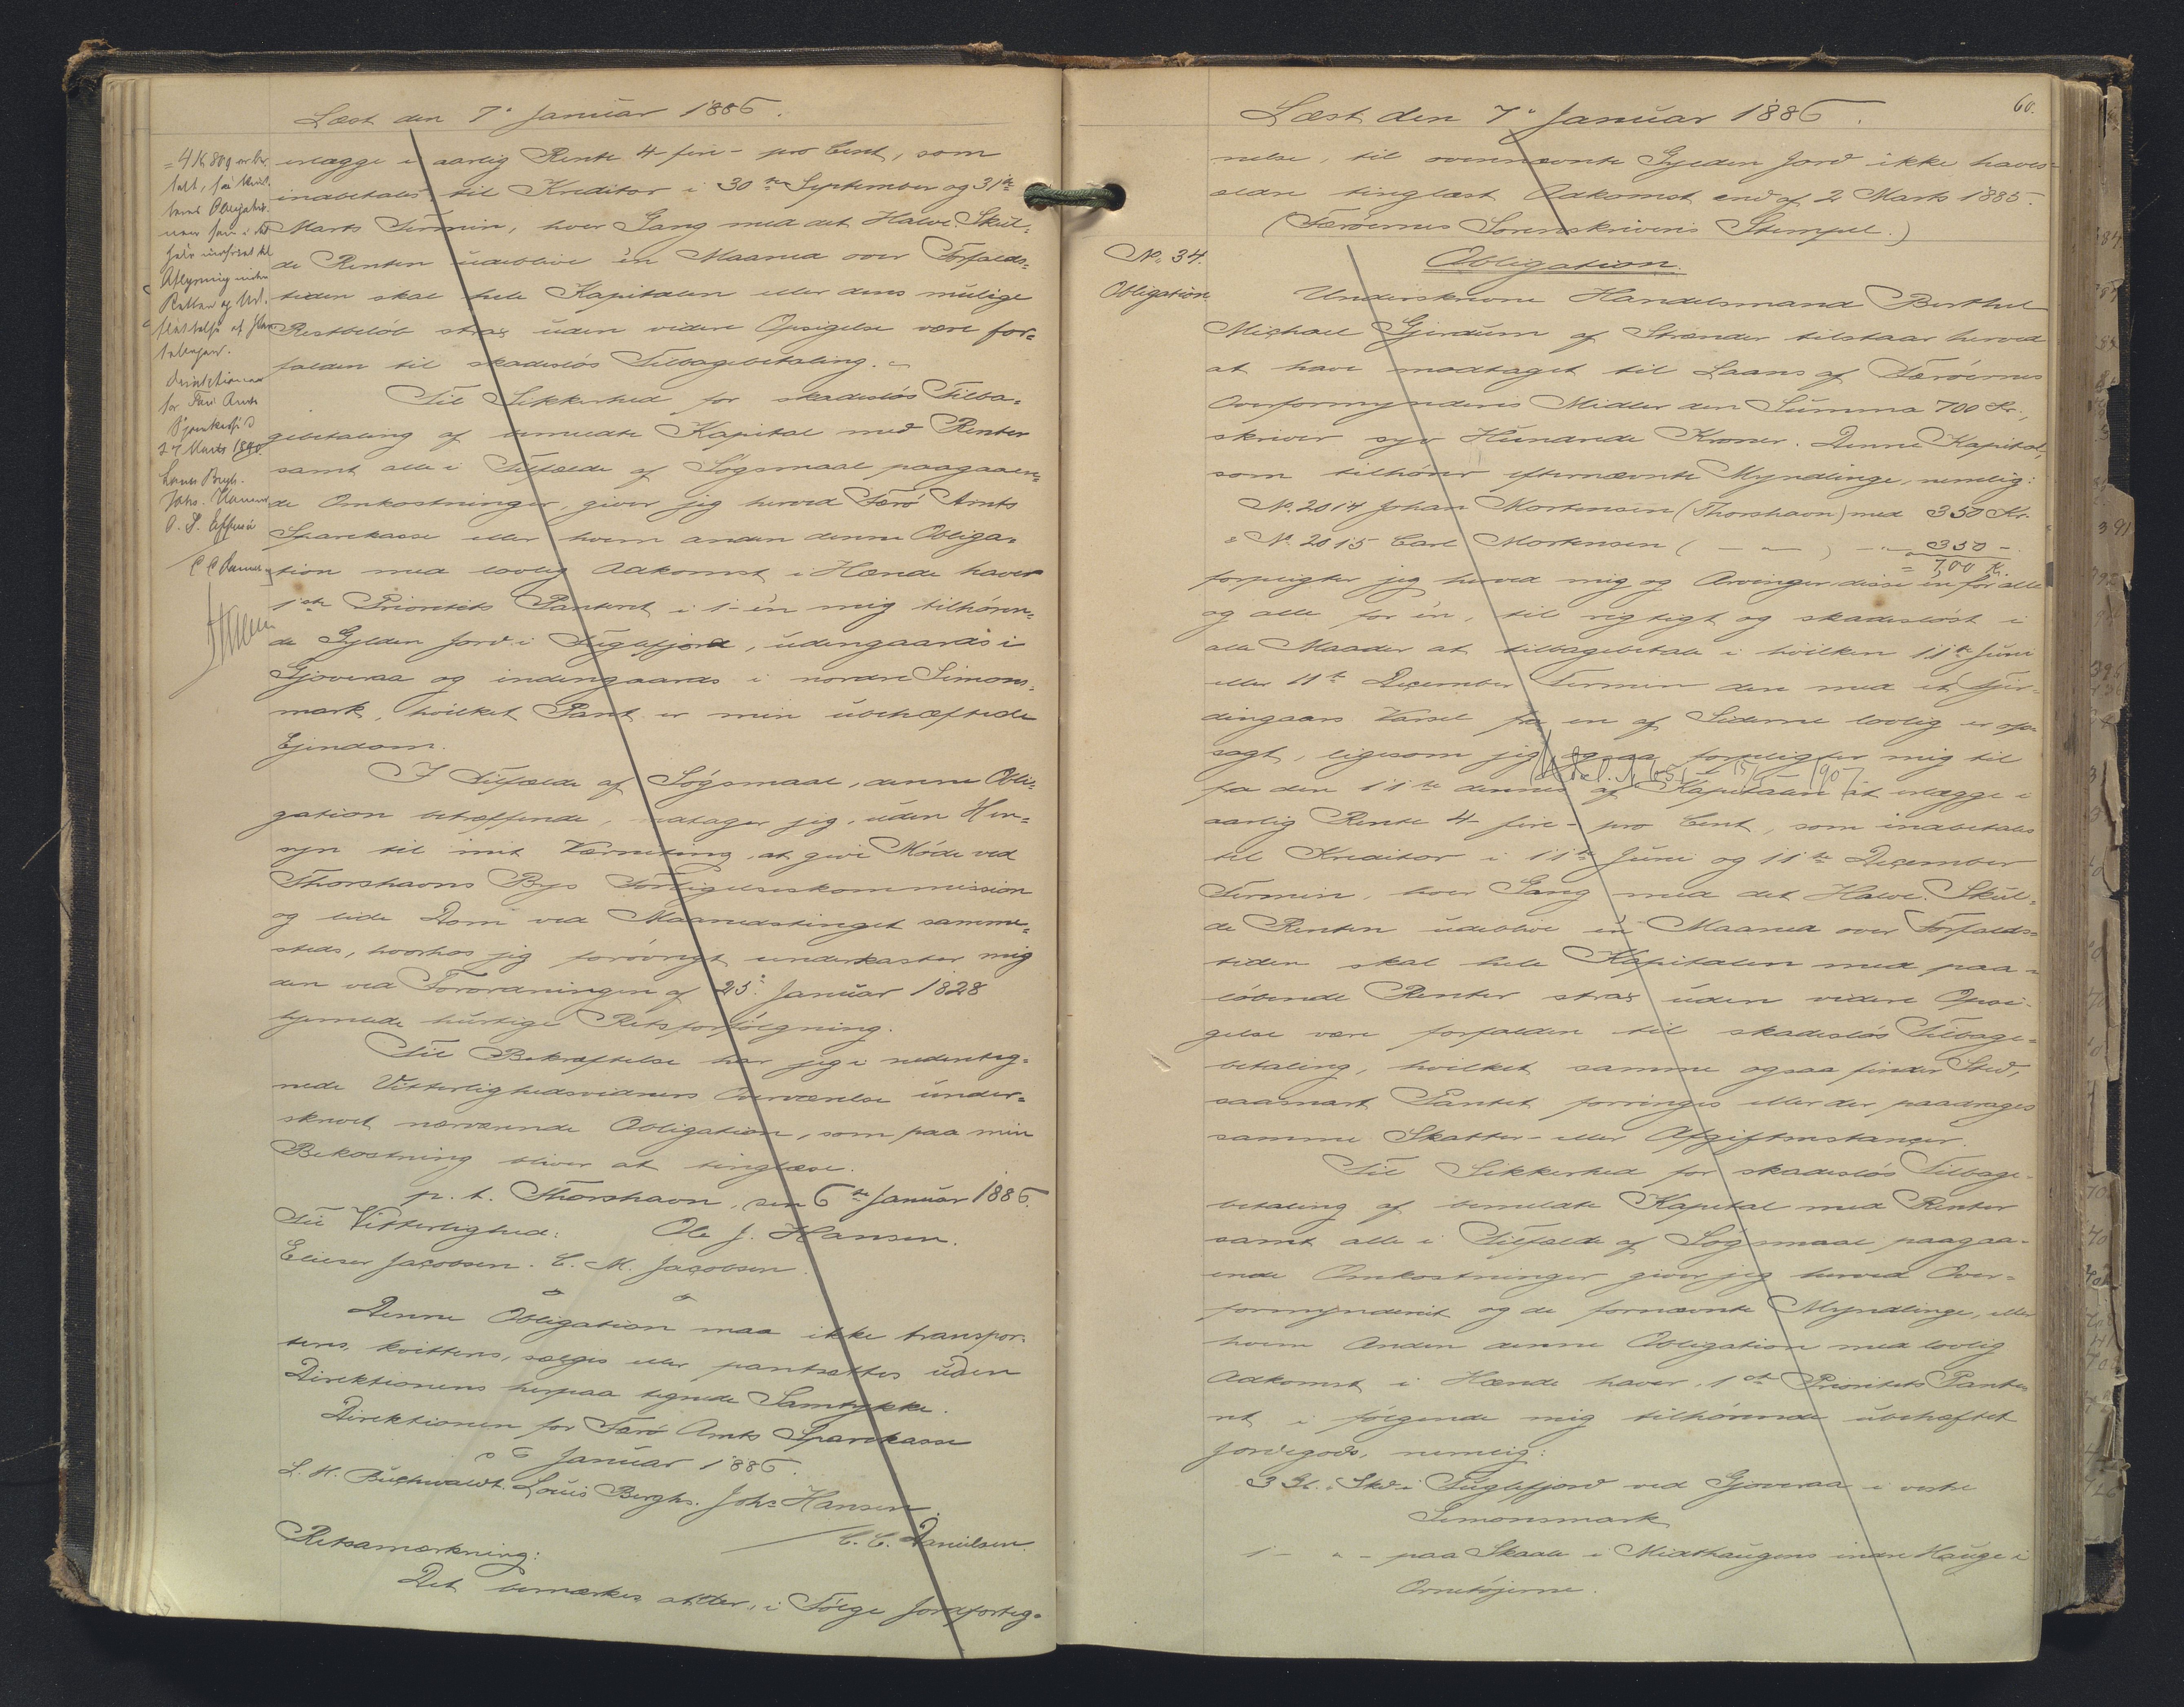 Læst den 7' Januar 1886.
erlægge i aarlig Rente 4 - fire - pro Cent, som
indbetales til Kreditor i 30te September og 31te
Marts Termin, hver Gang med det Halve. Skul-
de Renten udeblive én Maaned over Forfalds-
tiden skal hele Kapitalen eller dens mulige
Restbeløb strax uden videre Opsigelse være for-
falden til skadesløs Tilbagebetaling.
Til Sikkerhed for skadesløs Tilba-
gebetaling af bemeldte Kapital med Renter
samt alle i Tilfælde af Søgsmaal paagaaen-
de Omkostninger, giver jeg herved Færø Amts
Sparekasse eller hvem anden denne Obliga-
tion med lovlig Adkomst i Hænde haver
1ste Prioritets Panteret i 1 - én mig tilhøren-
de Gylden Jord i Fuglefjord, udengaards i
Gjoveraa og indengaards i nordre Simons-
mark, hvilket Pant er min ubehæftede
Ejendom.
I Tilfælde af Søgsmaal, denne Obli-
gation betræffende, vedtager jeg, uden Hen-
syn til mit Værneting, at give Møde ved
Thorshavns Byes Forligelseskommission
og lide Dom ved Maanedstinget samme-
steds, hvorhos jeg forøvrigt underkaster mig
den ved Forordningen af 25' Januar 1828
hjemlede hurtige Retsforfølgning.
Til Bekræftelse har jeg i nedenteg-
nede Vitterlighedsvidners Overværelse under-
skrevet nærværende Obligation, som paa min
Bekostning bliver at tinglæse.
p. t. Thorshavn, den 6te Januar 1886.
Til Vitterlighed: Ole J. Hansen.
Elieser Jacobsen. C. M. Jacobsen.
Denne Obligation maa ikke transpor-
teres, kvitteres, sælges eller pantsættes uden
Direktionens herpaa tegnede Samtykke.
Direktionen for Færø Amts Sparekasse
d 6 Januar 1886.
L. H. Buchwaldt. Louis Berghs. Johs Hansen.
C. C. Danielsen.
Retsanmærkning:
Det bemærkes at der, i Følge Jordforteg-
= 4 K 80 Ø er be
talt,
Obligation
Aflysning
Retten og
Direktionen
for Færø Amts
Sparekasse d
27 Marts 1890.
Louis Bergh.
Johs. Hansen
C C Danielsen
60.
Læst den 7' Januar 1886.
nelse, til ovennævnte Gylden Jord ikke haves
ældre tinglæst Adkomst end af 2 Marts 1885.
(Færøernes Sorenskriveris Stempel.)
No 34.
Obligation
Obligation.
Underskrevne Handelsmand Berthel
Michael Gjerdum af Strænder tilstaar herved
at have modtaget til Laans af Færøernes
Overformynderis Midler den Summa 700 Kr.,
skriver syv Hundrede Kroner. Denne Kapital,
som tilhører efternævnte Myndlinge, nemlig:
No. 2014 Johan Mortensen (Thorshavn) med 350 Kr.
" No. 2015 Carl Mortensen ( — " — ) — " — 350 -
= 700 K.
forpligter jeg herved mig og Arvinger disse én for alle
og alle for én, til rigtigt og skadesløst i
alle Maader at tilbagebetale i hvilken 11te Juni
eller 11te December Termin den med et Fjer-
dingaars Varsel fra en af Siderne lovlig er op-
sagt, ligesom jeg ogsaa forpligter mig til
fra den 11te dennes af Kapitalen at erlægge i
aarlig Rente 4 - fire - pro Cent, som indbetales
til Kreditor i 11te Juni og 11te December
Termin, hver Gang med det Halve. Skul-
de Renten udeblive én Maaned over Forfalds-
tiden skal hele Kapitalen med paa-
løbende Renter strax uden videre Opsi-
gelse være forfalden til skadesløs Tilbage-
betaling, hvilket samme ogsaa finder Sted,
saasnart Pantet forringes eller der paadrages
samme Skatte- eller Afgiftsrestancer.
Til Sikkerhed for skadesløs Tilbage-
betaling af bemeldte Kapital med Renter
samt alle i Tilfælde af Søgsmaal paagaa-
ende Omkostninger giver jeg herved Over-
formynderiet og de fornævnte Myndlinge, eller
hvem Anden denne Obligation med lovlig
Adkomst i Hænde haver, 1ste Prioritets Pante-
ret i følgende mig tilhørende ubehæftet
Jordegods, nemlig:
3 Gl. Skd i Fuglefjord ved Gjoveraa i vestre
Simonsmark
1 - " - paa Skaale i Midthaugens indre Hauge i
Ornetøjerne.